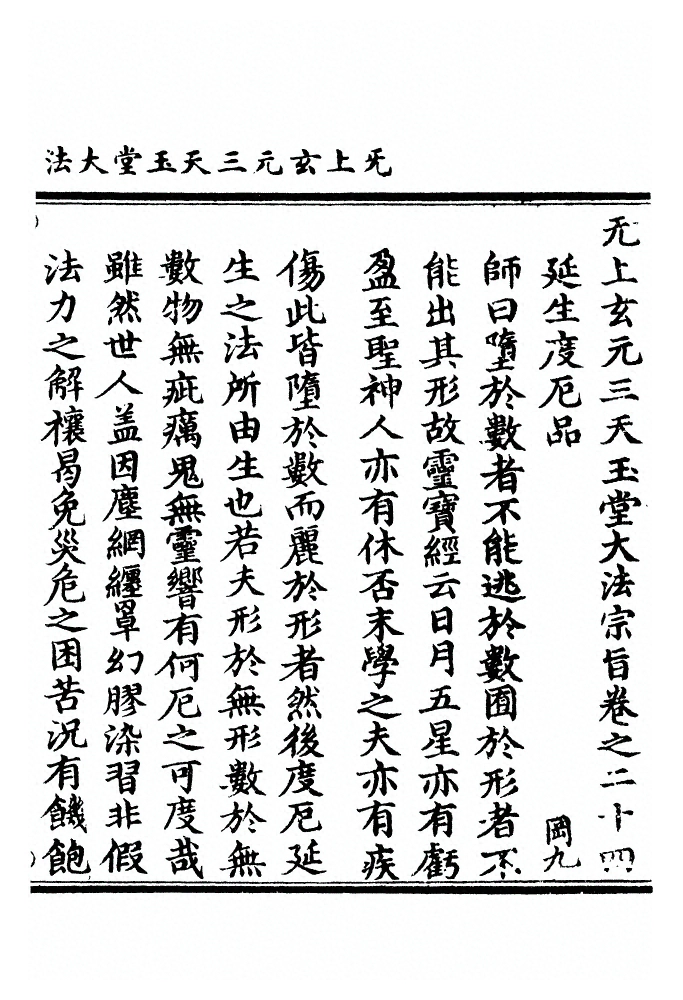 法大堂玉天三元玄上旡
旡上玄元三天玉堂大法宗旨卷之二十四
延生度厄品
岡九
師曰墮於數者不能逃於數囿於形者不
能出其形故靈寶經云日月五星亦有虧
盈至聖神人亦有休否末學之夫亦有疾
傷此皆墮於數而麗於形者然後度厄延
生之法所由生也若夫形於無形數於無
數物無疵癘鬼無靈響有何厄之可度哉
雖然世人盖因塵網纏罩幻膠染習非假
法力之解禳曷免災危之困苦況有饑飽